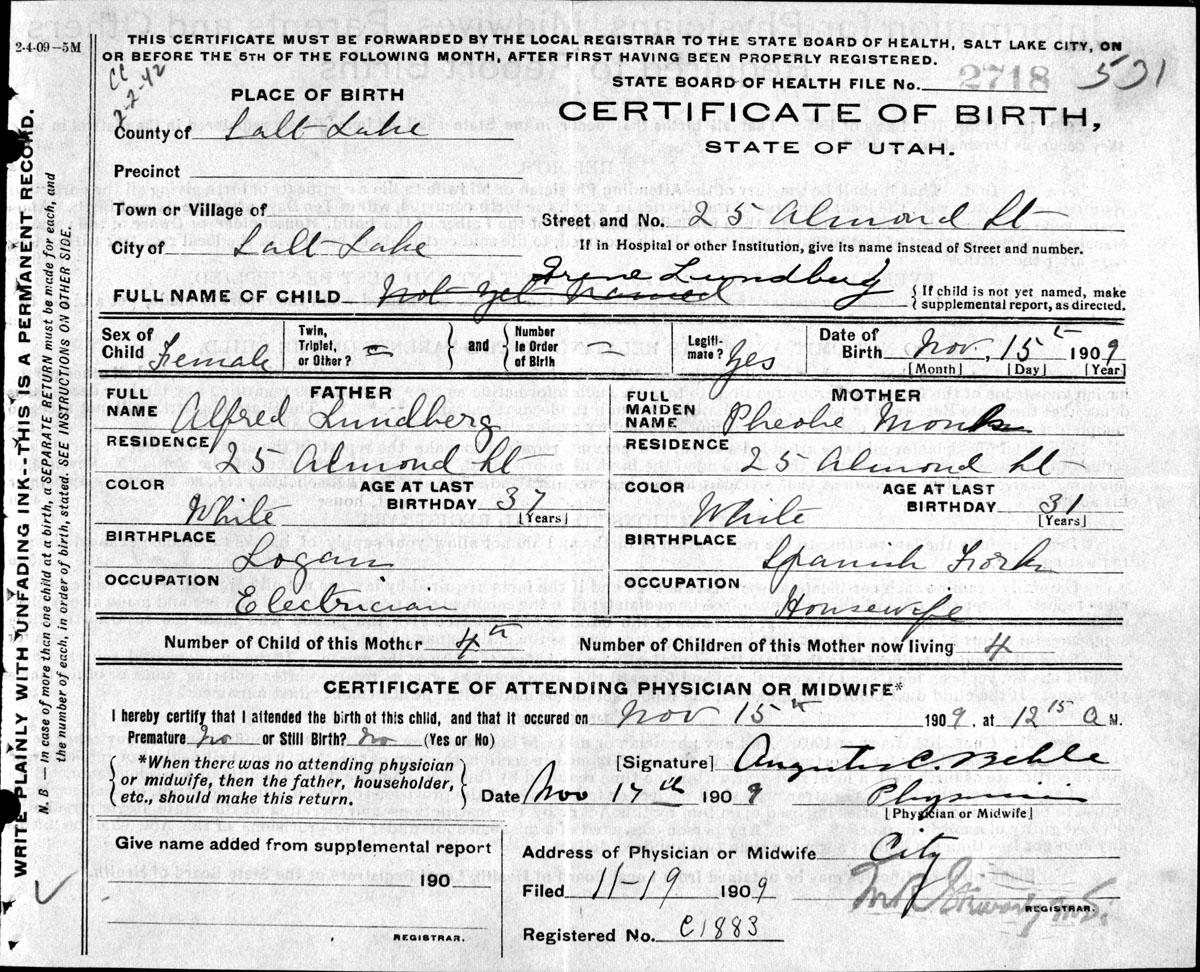 2-4-09-5M
THIS CERTIFICATE MUST BE FORWARDED BY THE LOCAL REGISTRAR TO THE STATE BOARD OF HEALTH, SALT LAKE CITY, ON
OR BEFORE THE 5TH OF THE FOLLOWING MONTH, AFTER FIRST HAVING BEEN PROPERLY REGISTERED.
STATE BOARD OF HEALTH FILE No. 2718 531
PLACE OF BIRTH
CERTIFICATE OF BIRTH,
STATE OF UTAH.
County of Salt Lake
Precinct
Town or Village of
Street and No. 25 Almond St
City of Salt Lake
If in Hospital or other Institution, give its name instead of Street and number.
Irene Lundberg
FULL NAME OF CHILD Not yet named
{ If child is not yet named, make
supplemental report, as directed.
Sex of Child Female
Twin, Triplet, or Other? =
and
Number in Order of Birth –
Legiti-mate? Yes
Date of Birth Nov. 15th 1909
[Month] [Day] [Year]
FATHER
FULL NAME Alfred Lundberg
RESIDENCE
25 Almond St
COLOR White
AGE AT LAST BIRTHDAY 37
[Years]
BIRTHPLACE
Logan
OCCUPATION
Electrician
MOTHER
FULL MAIDEN NAME Pheobe Monk
RESIDENCE
25 Almond St
COLOR White
AGE AT LAST BIRTHDAY 31
[Years]
BIRTHPLACE
Spanish Fork
OCCUPATION
Housewife
Number of Child of this Mother 4th Number of Children of this Mother now living 4
CERTIFICATE OF ATTENDING PHYSICIAN OR MIDWIFE*
I hereby certify that I attended the birth of this child, and that it occured on Nov 15th 1909, at 12 15 a M.
Premature No or Still Birth? No (Yes or No)
*When there was no attending physician
or midwife, then the father, householder,
etc., should make this return.
[Signature] C. Behle
Date Nov 17th 1909 Physician
[Physician or Midwife]
Give name added from supplemental report
190
REGISTRAR.
Address of Physician or Midwife City
Filed 11/19 1909
REGISTRAR.
Registered No. C1883
WRITE PLAINLY WITH UNFADING INK--THIS IS A PERMANENT RECORD.
N. B.—In case of more than one child at a birth, a SEPARATE RETURN must be made for each, and
the number of each, in order of birth, stated. SEE INSTRUCTIONS ON OTHER SIDE.